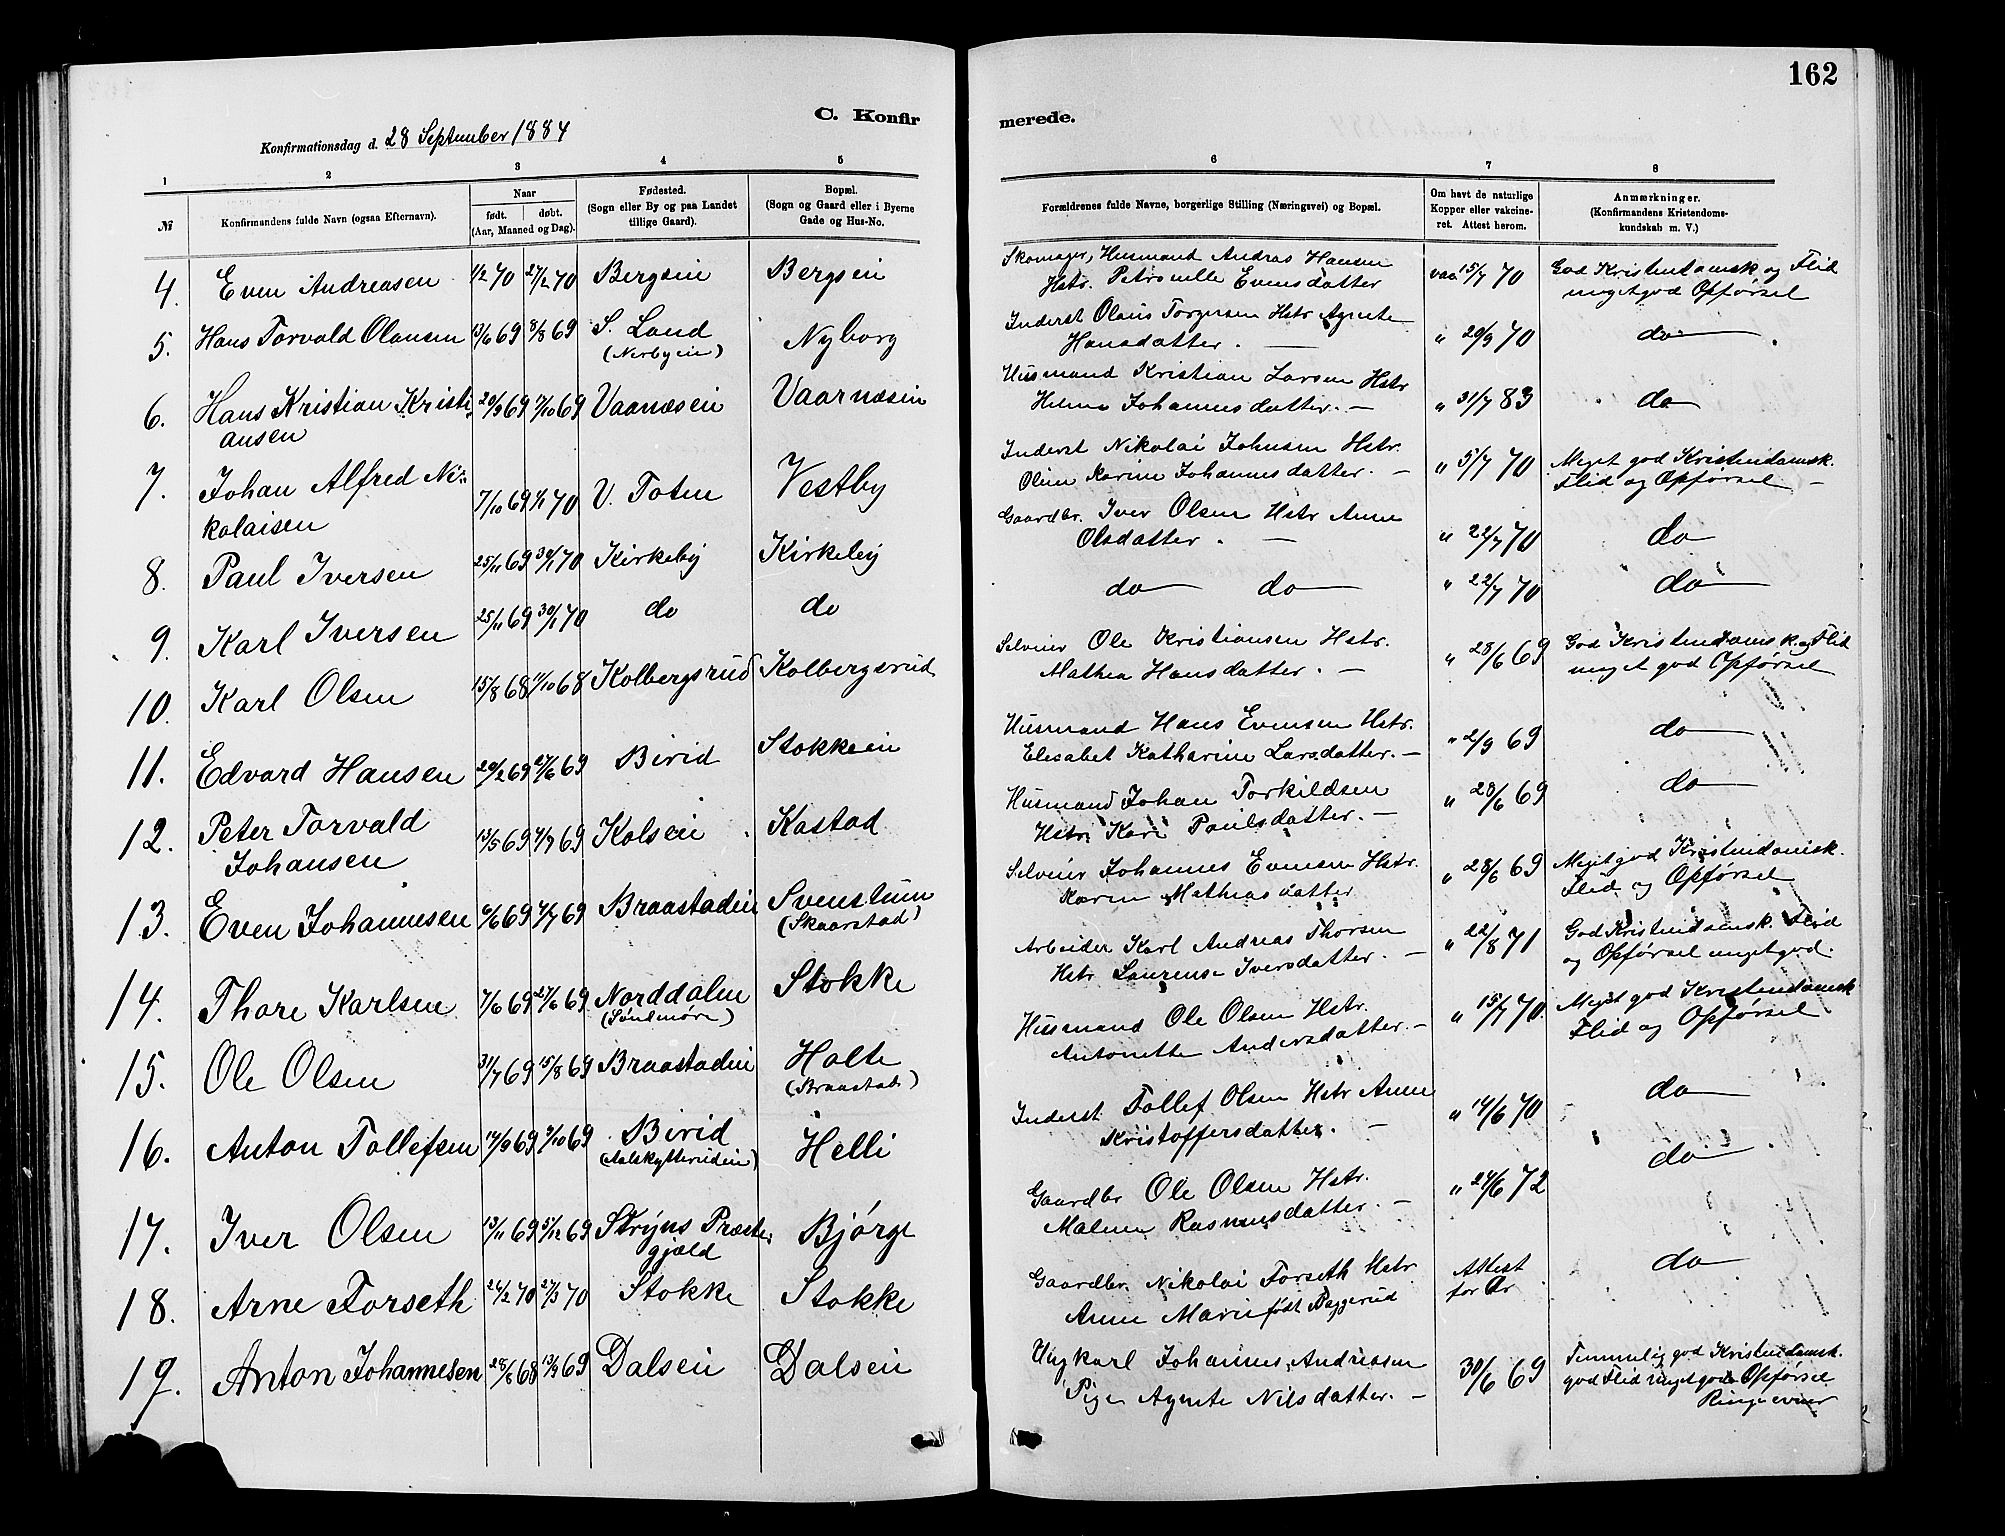 162
C. Konfir
merede.
Konfirmationsdag d. 28 September 1884
1 2 3 4 5 6 7 8
№
Konfirmandens fulde Navn (ogsaa Efternavn).
Naar
født. døbt.
(Aar, Maaned og Dag).
Fødested.
(Sogn eller By og paa Landet
tillige Gaard).
Bopæl.
(Sogn og Gaard eller i Byerne
Gade og Hus-No.
Forældrenes fulde Navne, borgerlige Stilling (Næringsvei) og Bopæl.
Om havt de naturlige
Kopper eller vakcine-
ret. Attest herom.
Anmærkninger.
(Konfirmandens Kristendoms-
kundskab m. V.)
4. Even Andreasen 1/2 70 27/2 70 Bergsein Bergsein
Skomager, Husmand Andras Hansen
Hstr. Petronelle Evensdatter
vac 15/7 70
God Kristendomsk og Flid
meget god Opførsel
5. Hans Torvald Olausen 13/6 69 8/8 69 S. Land Nyborg
(Nerbyein)
Inderst Olaus Torgersen Hstr Agnete
Hansdatter. —
" 20/9 70
do —
6. Hans Kristian Kristi
ansen
20/9 69 7/10 69 Vaanæsein Vaarnæsein
Husmand Kristian Larsen Hstr
Helene Johannesdatter. —
" 31/7 83
do —
7. Johan Alfred Ni-
kolaisen
7/10 69 1/1 70 V. Toten Vestby
Inderst Nikolai Johnsen Hstr.
Oline Karine Johannesdatter. —
" 5/7 70
Meget god Kristendomsk.
Flid og Opførsel —
8. Paul Iversen 25/11 69 30/1 70 Kirkeby Kirkeby
Gaardbr. Iver Olsen Hstr Anne
Olsdatter. —
" 22/7 70
do
9. Karl Iversen 25/11 69 30/1 70 do do
do — do —
" 22/7 70
do —
10. Karl Olsen 15/8 68 11/10 68 Kolbergsrud Kolbergsrud
Selveier Ole Kristiansen Hstr.
Mathea Hansdatter. —
" 28/6 69
God Kristendomsk. og Flid
meget god Opførsel
11. Edvard Hansen 20/2 69 27/6 69 Birid Stokkein
Husmand Hans Evensen Hstr.
Elesabet Katharine Larsdatter. —
" 2/9 69
do —
12. Peter Torvald
Johansen
13/5 69 4/7 69 Kolsein Kastad
Husmand Johan Torkildsen
Hstr. Kari Paulsdatter. —
" 28/6 69
do —
13. Even Johannesen 6/6 69 4/7 69 Braastadein Svenstum
(Skaarstad)
Selveier Johannes Evensen Hstr.
Karen Mathiasdatter
" 28/6 69
Meget god Kristendomsk.
Flid og Opførsel
14. Thore Karlsen 7/6 69 27/6 69 Norddalen Stokke
(Søndmøre)
Arbeider Karl Andreas Thorsen
Hstr Laurense Iversdatter. —
" 22/8 71
God Kristendomsk. Flid
og Opførsel meget god.
15. Ole Olsen 31/7 69 15/8 69 Braastadein Holte
(Braastad)
Husmand Ole Olsen Hstr.
Antonette Andersdatter. —
" 15/7 70.
Meget god Kristendomsk
Flid og Opførsel
16. Anton Tollefsen 14/9 69 3/10 69 Birid Helli
(Aalskytterudein)
Inderst Tollef Olsen Hstr Anne
Kristoffersdatter. —
" 14/6 70
do —
17. Iver Olsen 13/11 69 5/12 69 Stryns Præste-
gjæld
Bjørge
Gaardbr Ole Olsen Hstr.
Malene Rasmusdatter. —
" 24/6 72
do —
18. Arne Forseth 24/2 70 27/3 70 Stokke Stokke
Gaardbr. Nikolai Forseth Hstr
Anne Marie født Baggerud
Attest
for Ar
do —
19. Anton Johannesen 28/6 68 13/2 69 Dalsein Dalsein
Ungkarl Johannes Andreasen
Pige Agnete Nilsdatter. —
30/6 69
Temmelig god Kristendomsk.
god Flid meget god Opførsel
Ringe evner